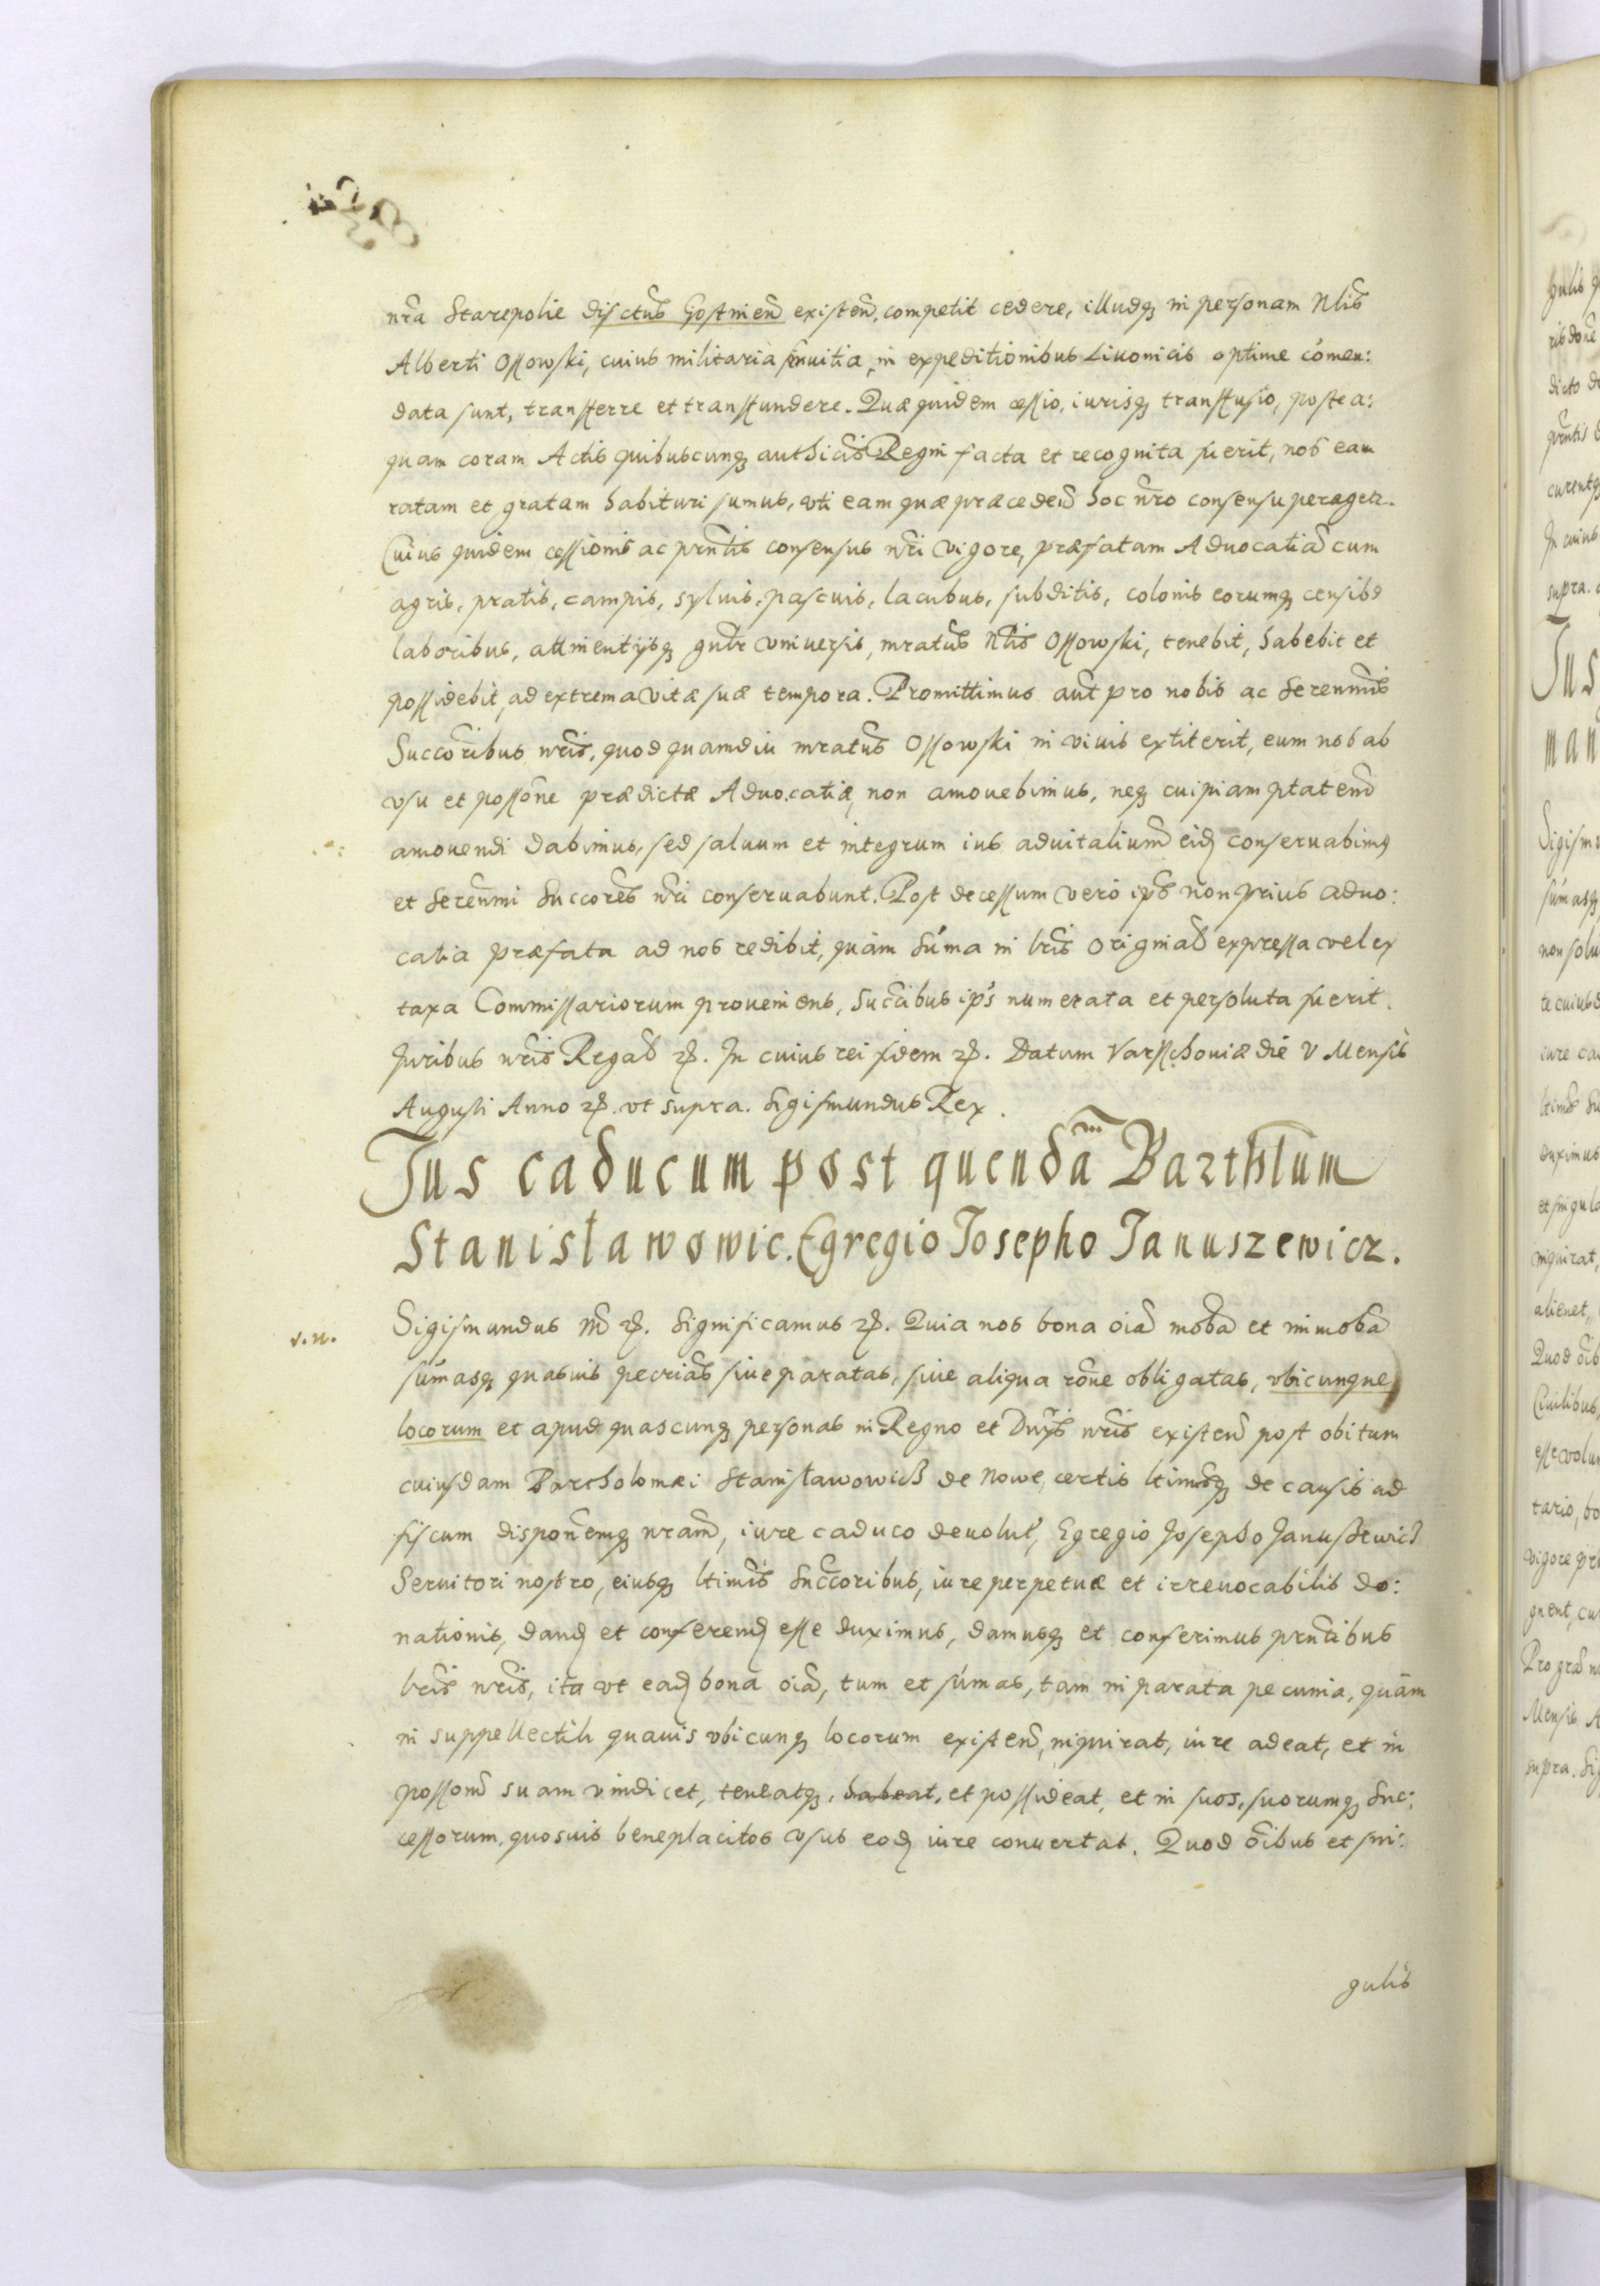 nra Starepolie districtus Gostinen existen, competit cedere, illudq in personam Nlis
Alberti Ossowski, cuius militaria servitia, in expeditionibus Livonicis optime comen:
data sunt, transferre et transfundere. Quæ quidem cessio, iurisq transfusio, postea:
quam coram Actis quibuscunq authicis Regni facta et recognita fuerit, nos eam
ratam et gratam habituri sumus, uti eam quæ præceden hoc nro consensu peragetr.
Cuius quidem cessionis ac prntis consensus nri vigore, præfatam Advocatia cum
agris, pratis, campis, sylvis, pascuis, lacubus, subditis, colonis eorumq censib9
laboribus, attinentijsq gnlr universis, mratus Nlis Ossowski, tenebit, habebit et
possidebit, ad extrema vitæ suæ tempora. Promittimus aut pro nobis ac Serenmis
Succoribus nris, quod quamdiu mratus Ossowski in vivis extiterit, eum nos ab
usu et possone prædictæ Advocatiæ non amovebimus, neq cuipiam ptatem
amovendi dabimus, sed salvum et integrum ius advitalium eid conservabim9
et Serenmi Succores nri conservabunt. Post decessum vero ips non prius advo:
catia præfata ad nos redibit, quàm suma in lris originab expressa vel ex
taxa Commissariorum proveniens, succibus ips numerata et persoluta fuerit.
Juribus nris Regab etc. In cuius rei fidem etc. Datum Varsschoviæ die V Mensis
Augusti Anno etc. ut supra. Sigismundus Rex.
Jus caducum post quendam Barthlum
Stanislawowic. Egregio Josepho Januszewicz.
s.n.
Sigismundus III etc. Significamus etc. Quia nos bona oia moba et immoba
sumasq quasvis pecrias sive paratas, sive aliqua rone obligatas, ubicunque
locorum et apud quascunq personas in Regno et Dnijs nris existen post obitum
cuiusdam Bartholomæi Stanisławowicz de Nowe, certis ltimisq de causis ad
fiscum disponemq nram, iure caduco devolut, Egregio Josepho Januszewicz
Servitori nostro, eiusq ltimis Succoribus, iure perpetuæ et irrevocabilis do:
nationis, dand et conferend esse duximus, damusq et conferimus prntibus
lris nris, ita ut ead bona oia, tum et sumas, tam in parata pecunia, quàm
in suppellectili quavis ubicunq locorum existen, inquirat, iure adeat, et in
possom suam vindicet, teneatq, habeat, et possideat, et in suos, suorumq Suc:
cessorum, quosvis beneplacitos usus eod iure convertat. Quod oibus et sin:
gulis